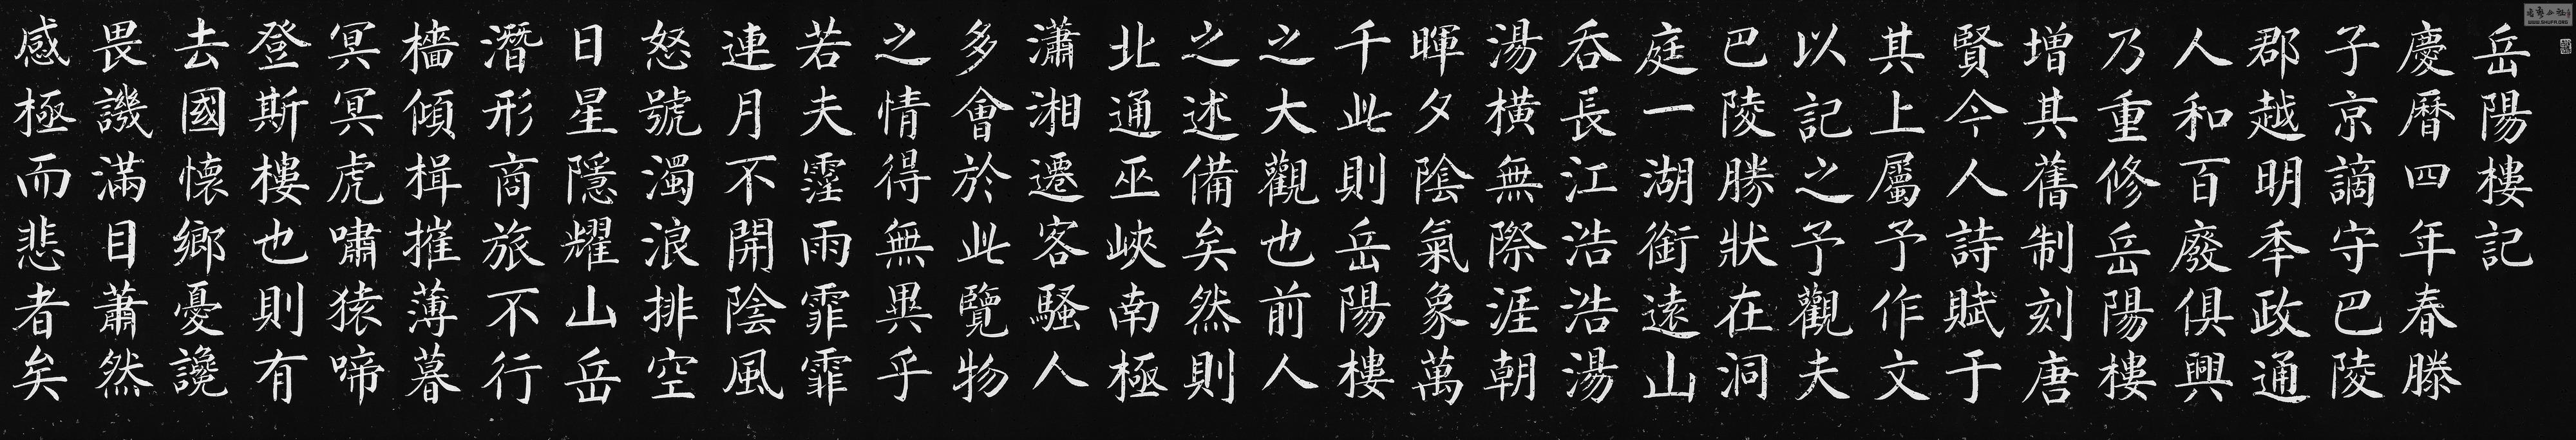 岳陽樓記
慶曆四年春滕
子京謫守巴陵
郡越明年政通
人和百廢俱興
乃重修岳陽樓
增其舊制刻唐
賢今人詩賦于
其上屬予作文
以記之予觀夫
巴陵勝狀在洞
庭一湖銜遠山
吞長江浩浩湯
湯橫無際涯朝
暉夕陰氣象萬
千此則岳陽樓
之大觀也前人
之述備矣然則
北通巫峽南極
瀟湘遷客騷人
多會於此覽物
之情得無異乎
若夫霪雨霏霏
連月不開陰風
怒號濁浪排空
日星隱耀山岳
潛形商旅不行
檣傾楫摧薄暮
冥冥虎嘯猿啼
登斯樓也則有
去國懷鄉憂讒
畏譏滿目蕭然
感極而悲者矣
WWW.SHUFA.ORG